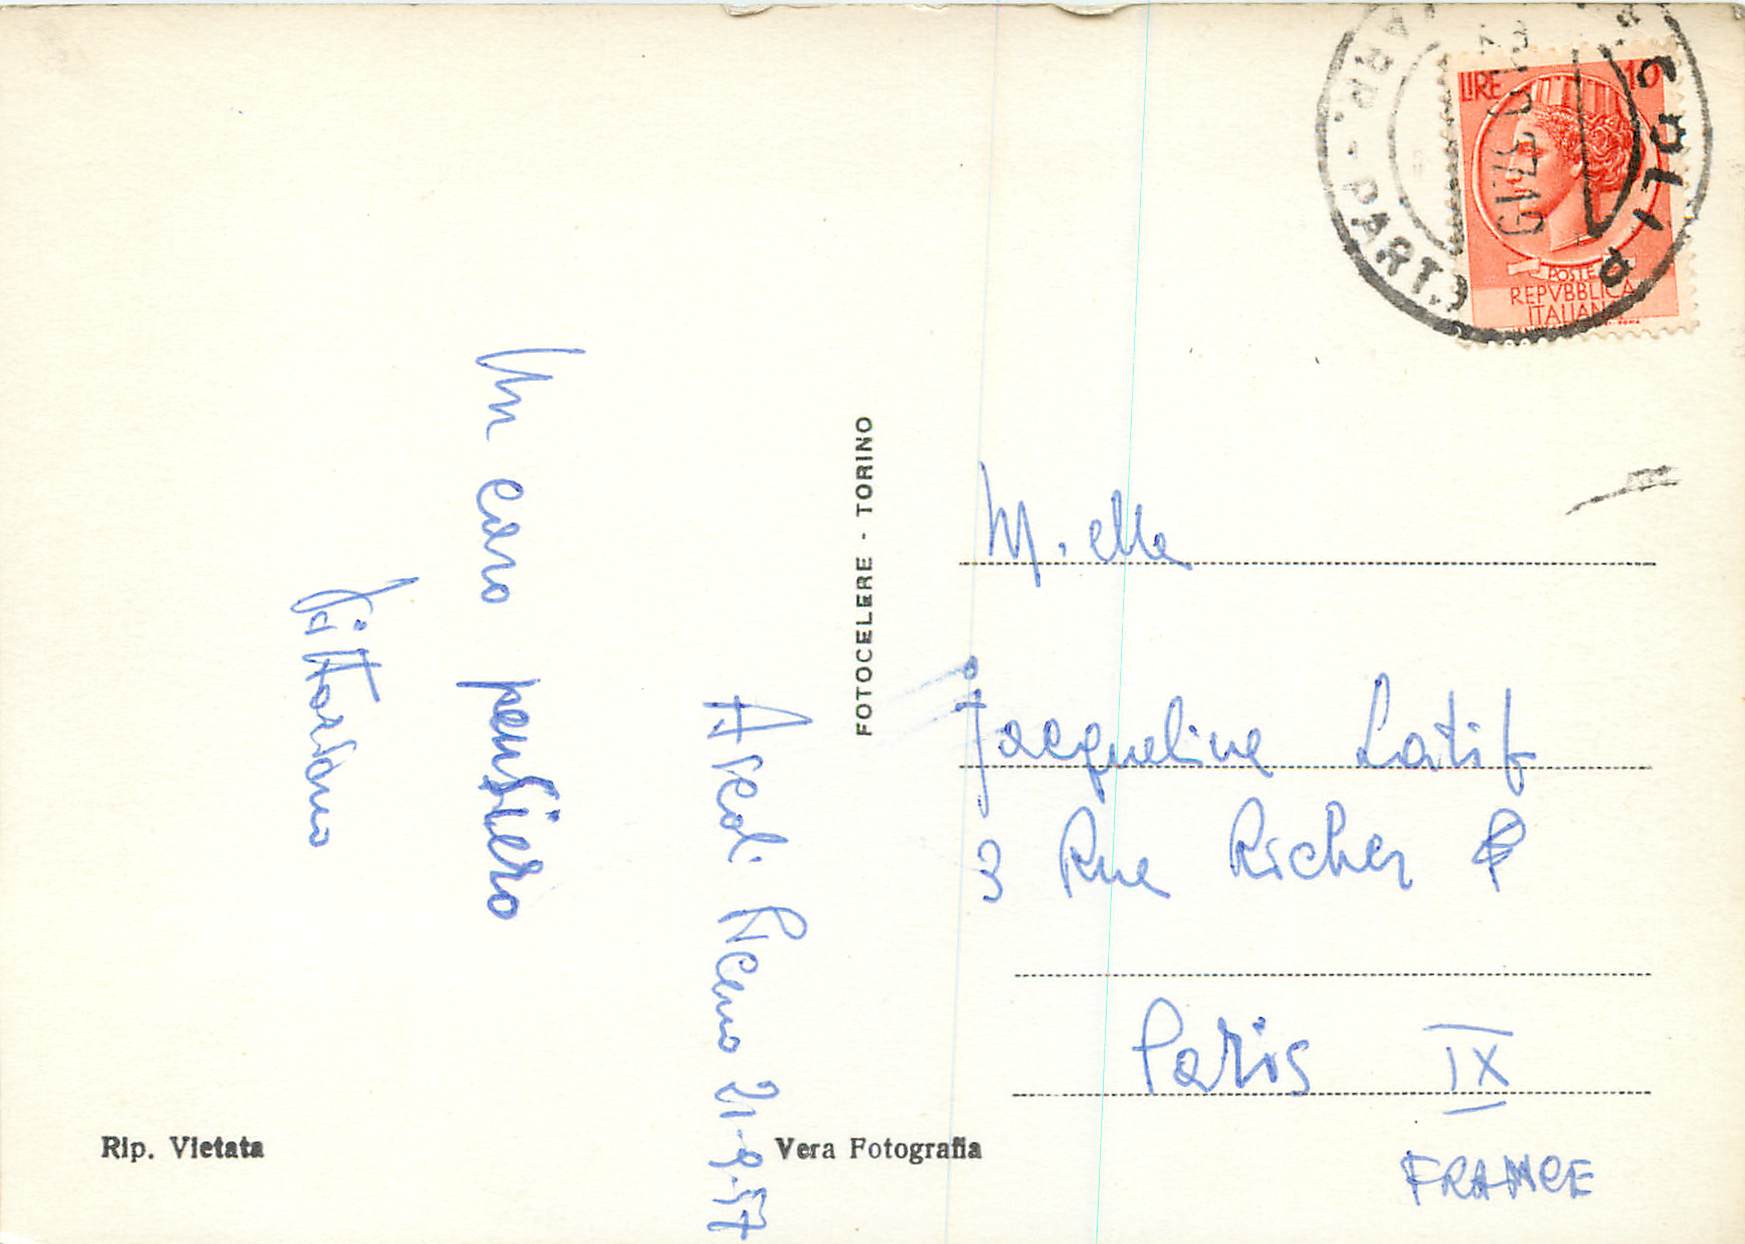 Ascoli Piceno 21-9-57
Un caro pensiero
Vittoriano
FOTOCELERE - TORINO
Rip. Vietata
Vera Fotografia
LIRE 10
POSTE
REPVBBLICA
ITALIANA
ARR. - PART.
M.elle
Jacqueline Latif
3 Rue Richer
Paris IX
FRANCE